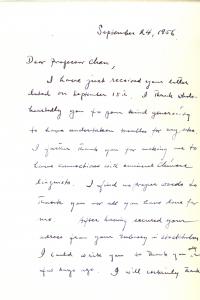 September 24, 1956
Dear Professor Chao,
I have just received your letter
dated on September 15th. I thank whole-
heartedly you to your kind generosity
to have undertaken troubles for my sake.
I further thank you for making me to
have connections with eminent Chinese
linguists. I find no proper words to
thank you for all you have done for
me. After having secured your
adress from your Embassy in Stockholm
I could write you to thank you only
few days ago. I will certainly thank